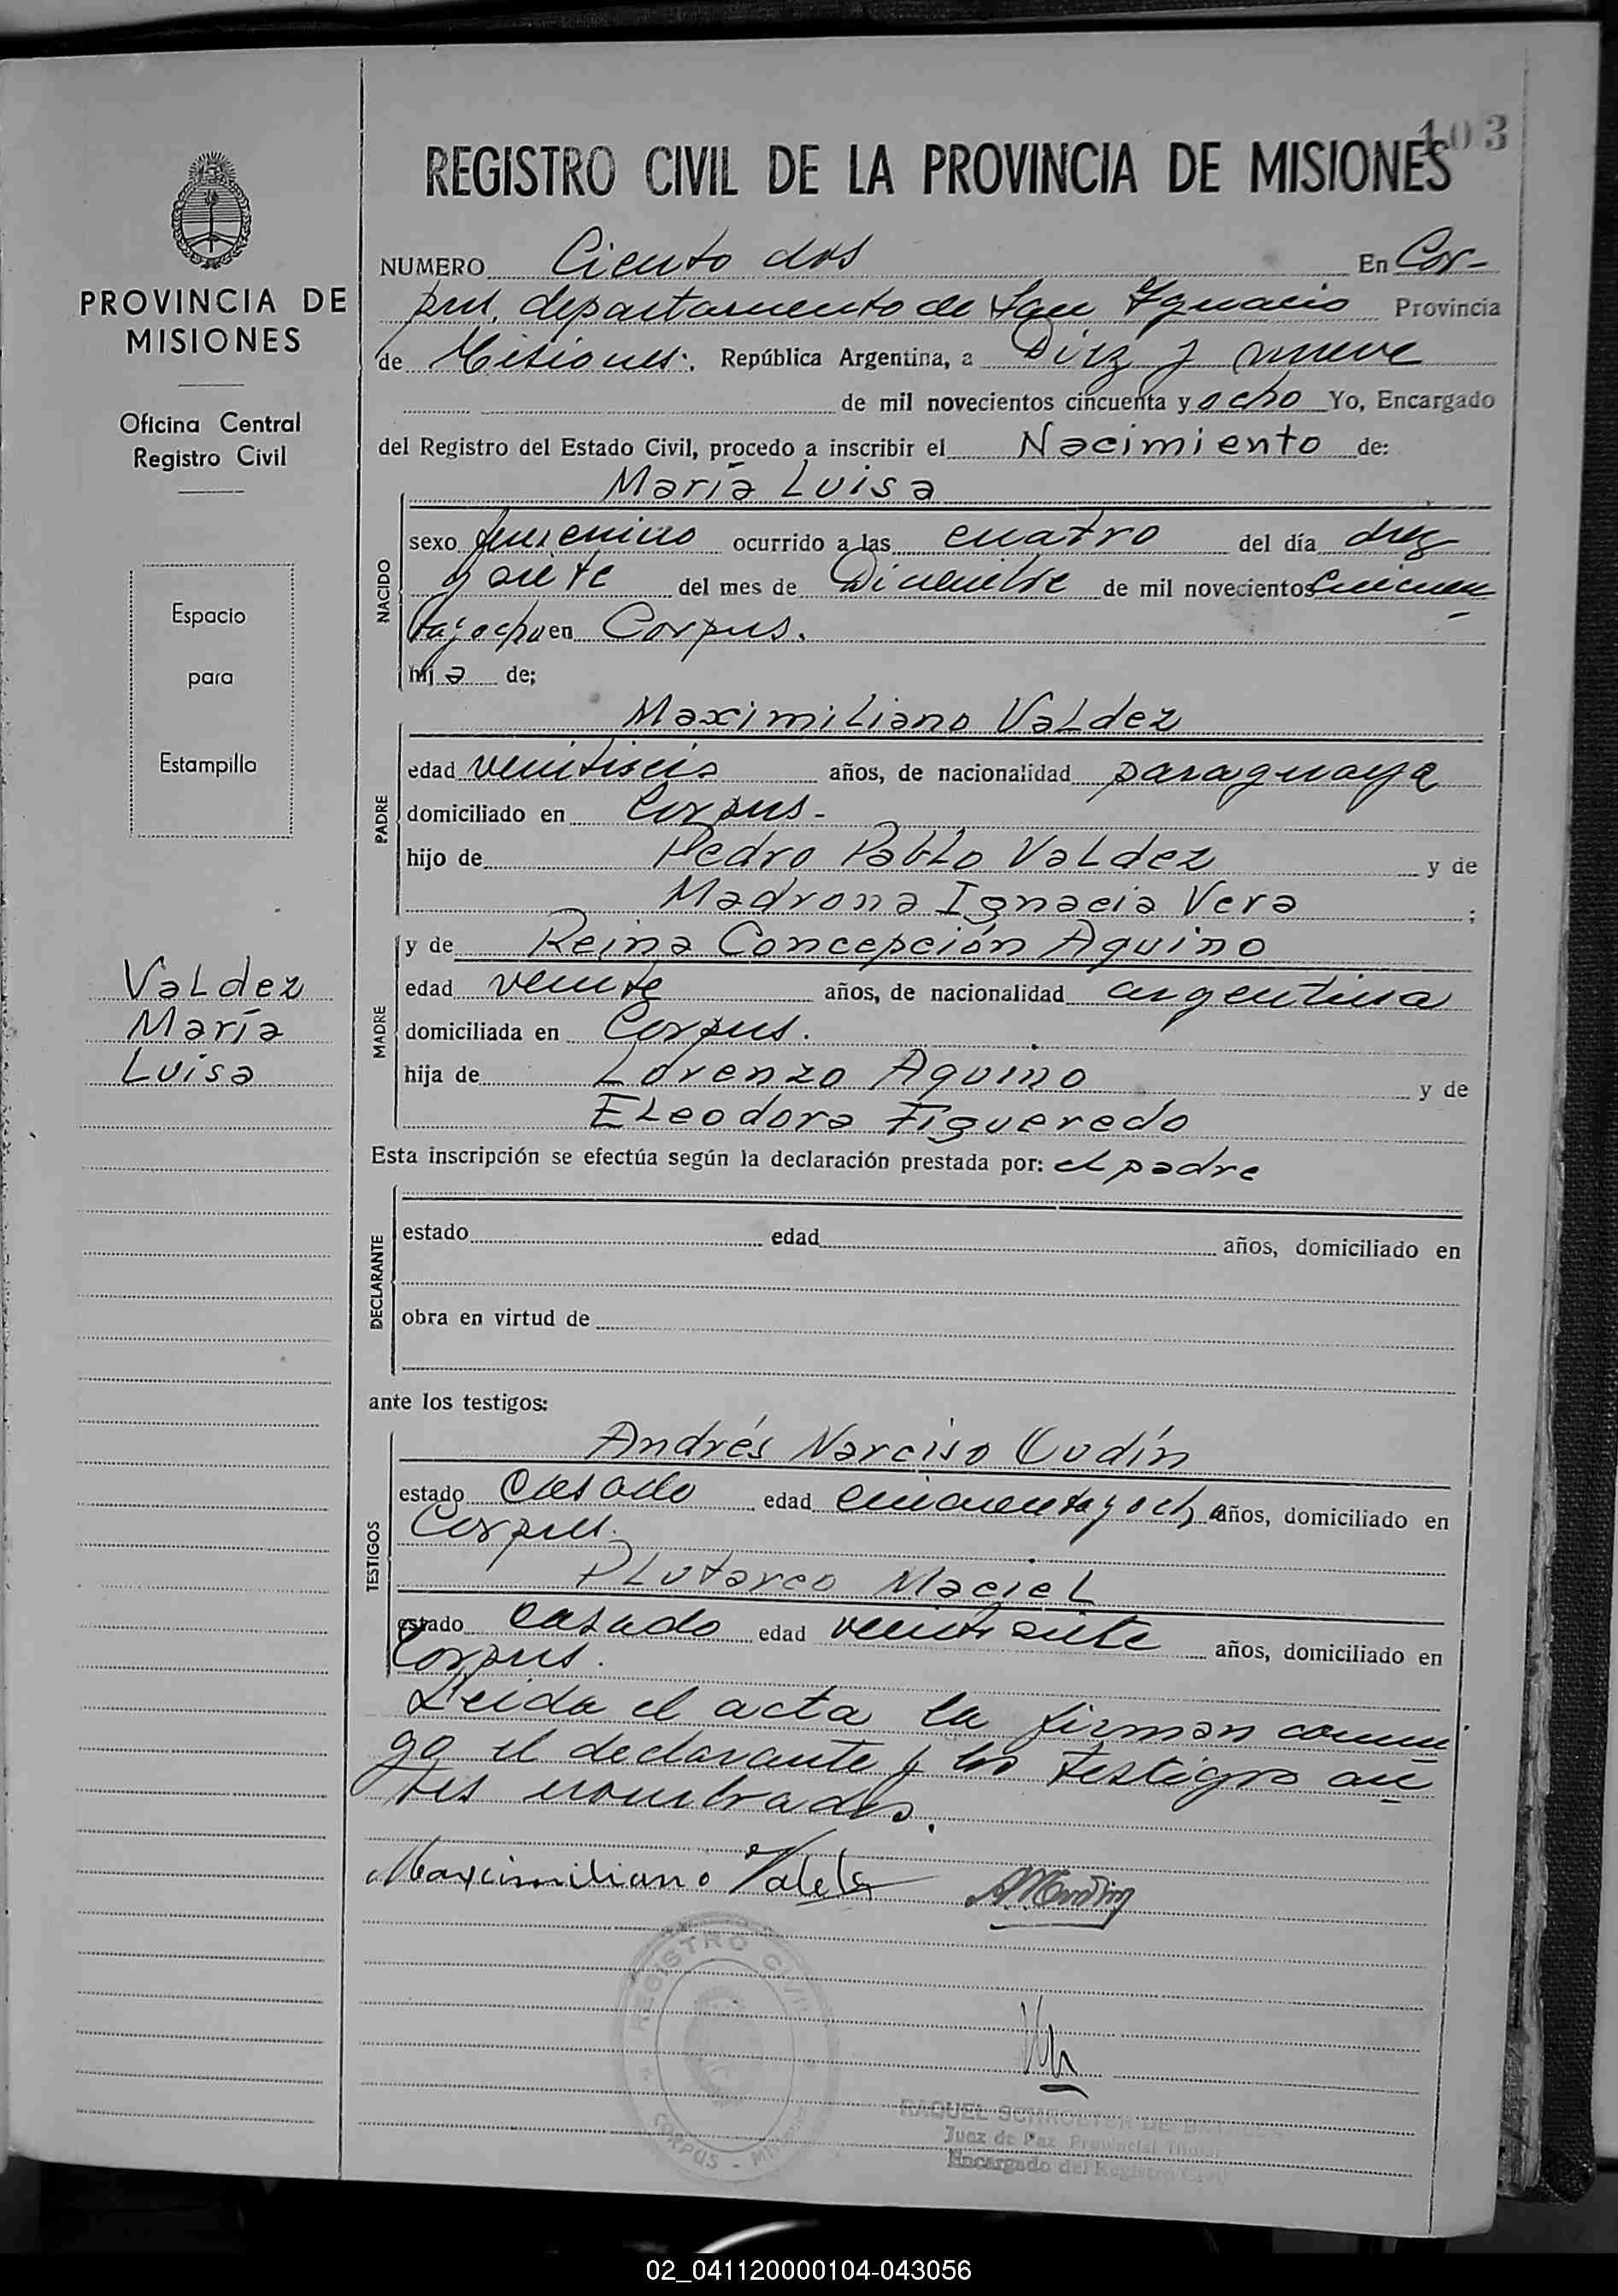 103
REGISTRO CIVIL DE LA PROVINCIA DE MISIONES
PROVINCIA DE
MISIONES
Oficina Central
Registro Civil
Espacio
para
Estampilla
Valdez
María
Luisa
NUMERO Ciento dos En Cor-
pus, departamento de San Ignacio Provincia
de Misiones. República Argentina, a Diez y nueve
de mil novecientos cincuenta y ocho Yo, Encargado
del Registro del Estado Civil, procedo a inscribir el Nacimiento de:
NACIDO
María Luisa
sexo femenino ocurrido a las cuatro del día diez
y siete del mes de Diciembre de mil novecientos cincuen-
tayocho en Corpus.
hija de;
PADRE
Maximiliano Valdez
edad veintiseis años, de nacionalidad paraguaya
domiciliado en Corpus.-
hijo de Pedro Pablo Valdez y de
Madrona Ignacia Vera ;
MADRE
y de Reina Concepción Aquino
edad veinte años, de nacionalidad argentina
domiciliada en Corpus.
hija de Lorenzo Aquino y de
Eleodora Figueredo
Esta inscripción se efectúa según la declaración prestada por: el padre
DECLARANTE
estado edad años, domiciliado en
obra en virtud de
ante los testigos:
TESTIGOS
Andrés Narciso
estado Casado edad cincuentayocho años, domiciliado en
Corpus.
Plutarco Maciel
estado casado edad veintisiete años, domiciliado en
Corpus.
Leida el acta la firman conmi-
go el declarante y los testigos an-
tes nombrados.
Maxcimiliano Valdez
REGISTRO CIVIL
CORPUS - MISIONES
RAQUEL SCHROETER DE
Juez de Paz Provincial Titular
Encargado del Registro Civil
02_041120000104-043056